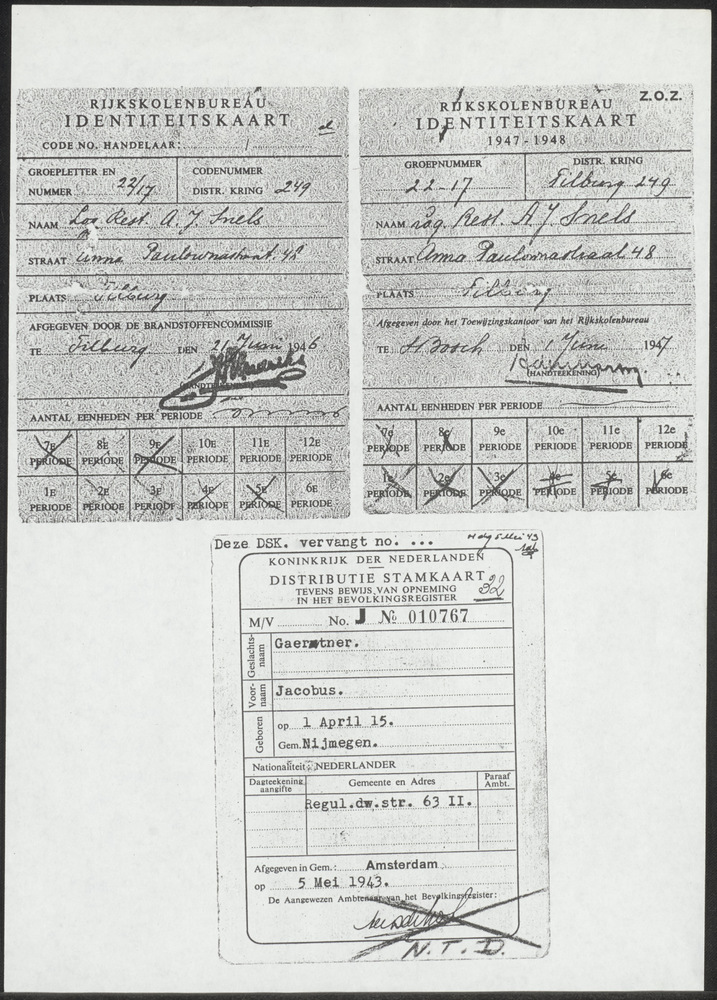 RIJKSKOLENBUREAU
IDENTITEITSKAART
CODE NO. HANDELAAR:
GROEPLETTER EN
NUMMER 22/17
CODENUMMER
DISTR. KRING 249
NAAM Log. Rest. A. J. Snels
STRAAT Anna Paulownastraat. 48
PLAATS Tilburg
AFGEGEVEN DOOR DE BRANDSTOFFENCOMMISSIE
TE Tilburg DEN 21 Juni 1946
AANTAL EENHEDEN PER PERIODE
7E PERIODE 8E PERIODE 9E PERIODE 10E PERIODE 11E PERIODE 12E PERIODE
1E PERIODE 2E PERIODE 3E PERIODE 4E PERIODE 5E PERIODE 6E PERIODE
Z.O.Z.
RIJKSKOLENBUREAU
IDENTITEITSKAART
1947 - 1948
GROEPNUMMER
22-17
DISTR. KRING
Tilburg 249
NAAM Log. Rest. A. J. Snels
STRAAT Anna Paulownastraat 48
PLAATS Tilburg
Afgegeven door het Toewijzingskantoor van het Rijkskolenbureau
TE H Bosch DEN 1 Juni 1947
(HANDTEEKENING)
AANTAL EENHEDEN PER PERIODE
7e PERIODE 8e PERIODE 9e PERIODE 10e PERIODE 11e PERIODE 12e PERIODE
1e PERIODE 2e PERIODE 3e PERIODE 4e PERIODE 5e PERIODE 6e PERIODE
Deze DSK. vervangt no. ...
KONINKRIJK DER NEDERLANDEN
DISTRIBUTIE STAMKAART 32
TEVENS BEWIJS VAN OPNEMING
IN HET BEVOLKINGSREGISTER
M/V No. J No 010767
Geslachtsnaam Gaertner.
Voornaam Jacobus.
Geboren op 1 April 15.
Gem. Nijmegen.
Nationaliteit: NEDERLANDER
Dagteekening aangifte
Gemeente en Adres
Paraaf Ambt.
Regul.dw.str. 63 II.
Afgegeven in Gem.: Amsterdam
op 5 Mei 1943.
De Aangewezen Ambtenaar van het Bevolkingsregister:
N.T.D.